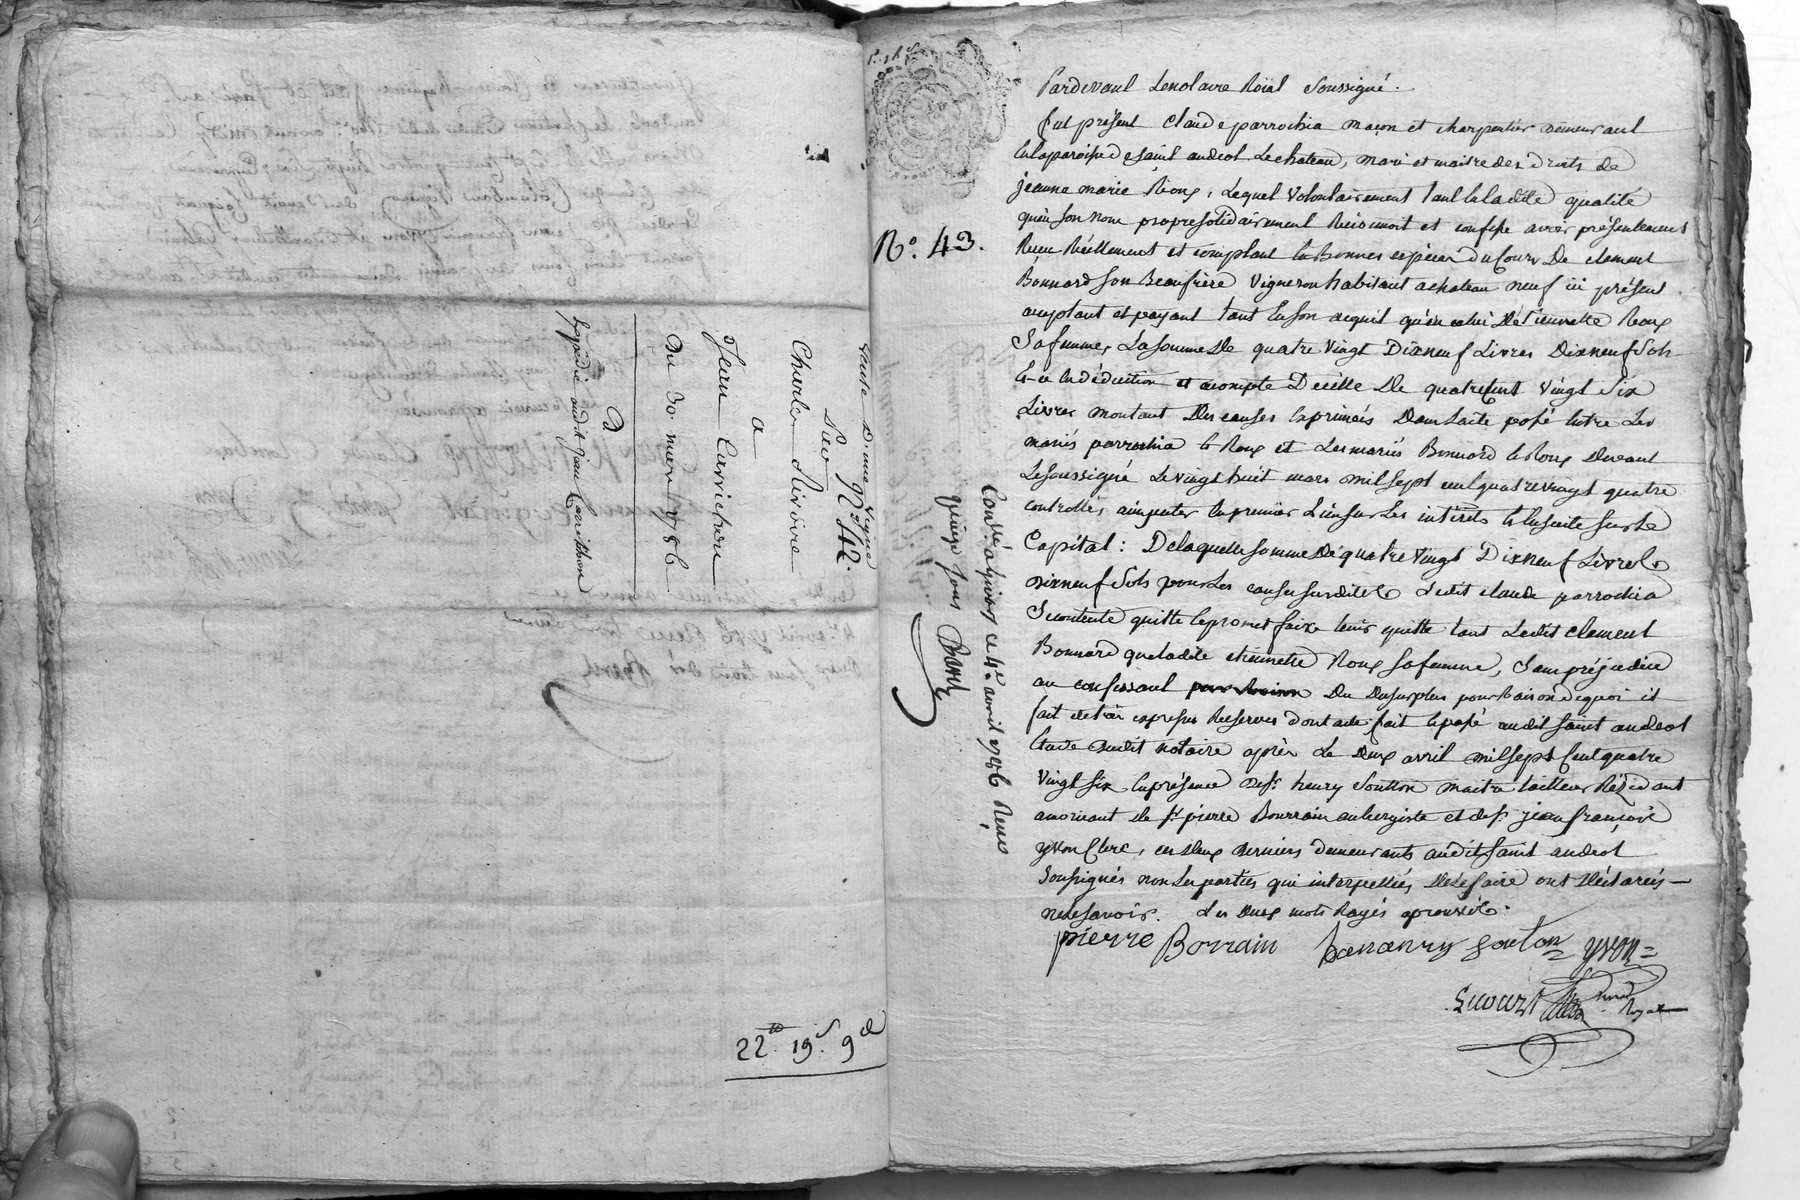 Vente D'une Vigne
Nº 42.
Charles Rivoire
a
Jean Carrichon
Du 30. mars 1786
Expédié audit jean Carrichon
22.lt 19.s 9.d
Nº. 43.
Pardevant Lenotaire Roïal Soussigné.
fut présent claude parrochia maçon et charpentier demeurant
En laparoisse desaint andeol Lechateau, mari et maitre des droits de
jeanne marie Roux, Lequel volontairement tant En ladite qualité
qu'en son nom propre solidairement Reconnoit et confesse avoir présentement
Reçu Réellement et comptant En Bonnes especes ducours De clement
Bonnard son Beaufrère Vigneron habitant achateau neuf ici présent
acceptant et payant tant En son acquit qu'en celui D'etiennette Roux
Safemme, Lasomme De quatre Vingt Dixneuf Livres Dixneuf Sols
Et ce En déduction et acompte De celle De quatre Cent Vingt Six
Livres montant Des causes Exprimées Dans Lacte passé Entre Les
mariés parrochia Et Roux et Les mariés Bonnard Et Roux Devant
Lesoussigné Le vingt huit mars mil sept cent quatrevingt quatre
controllé, aimputer En premier Lieu sur Les intérêts Et Ensuite sur Le
Capital: De laquelle somme De quatre Vingt Dixneuf Livres
dixneuf Sols pour Les causes susdites Ledit claude parrochia
Secontente quitte Et promet faire tenir quitte tant Ledit clement
Bonnard que ladite etiennette Roux safemme, Sans préjudice
au confessant pour Raison Du Dusurplus pour Raison dequoi il
fait
expresses Reserves dont acte fait Et passé audit saint andeol
Etude dudit notaire après
Le Deux avril mil sept Cent quatre
Vingt six En présence de sr. henry Soutton maitre tailleur Résidant
amornant de sr. pierre Bourrain aubergiste et de sr. jean françois
yvon Clerc, ces deux derniers demeurants audit saint andeol
Soussignés non Les parties qui interpellés De le faire ont Déclarées
nele savoir. Les Deux mots Rayés aprouvés.
pierre Borrain
souton yvon
Contrôlé a Givors ce 4e. avril 1786 Reçu
quinze sous